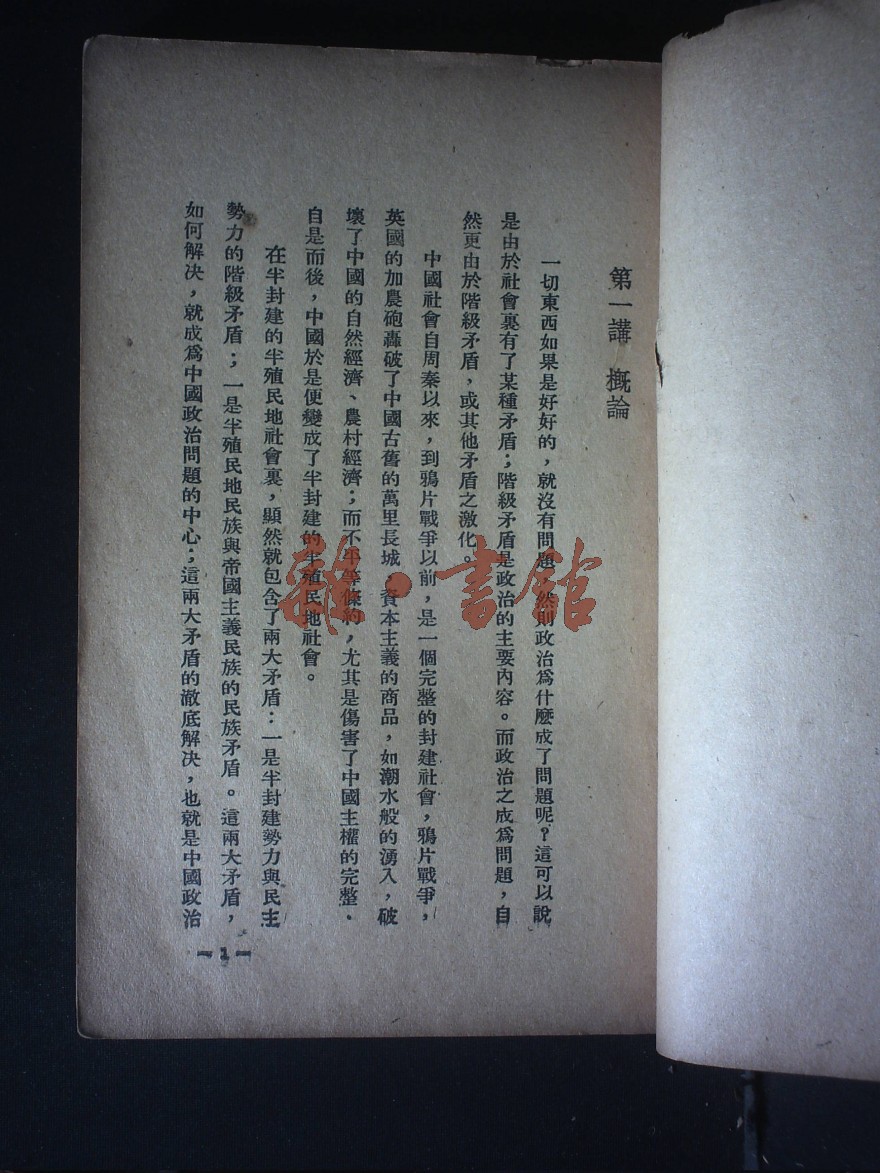 第一講 概論
一切東西如果是好好的，就沒有問題，然則政治爲什麽成了問題呢？這可以說
是由於社會裏有了某種矛盾；階級矛盾是政治的主要內容。而政治之成爲問題，自
然更由於階級矛盾，或其他矛盾之激化。
中國社會自周秦以來，到鴉片戰爭以前，是一個完整的封建社會，鴉片戰爭，
英國的加農砲轟破了中國古舊的萬里長城，資本主義的商品，如潮水般的湧入，破
壞了中國的自然經濟、農村經濟；而不平等條約，尤其是傷害了中國主權的完整．
自是而後，中國於是便變成了半封建的半殖民地社會。
在半封建的半殖民地社會裏，顯然就包含了兩大矛盾：一是半封建勢力與民主
勢力的階級矛盾；一是半殖民地民族與帝國主義民族的民族矛盾。這兩大矛盾，
如何解决，就成爲中國政治問題的中心；這兩大矛盾的澈底解决，也就是中國政治
— 1 —
雜·書館